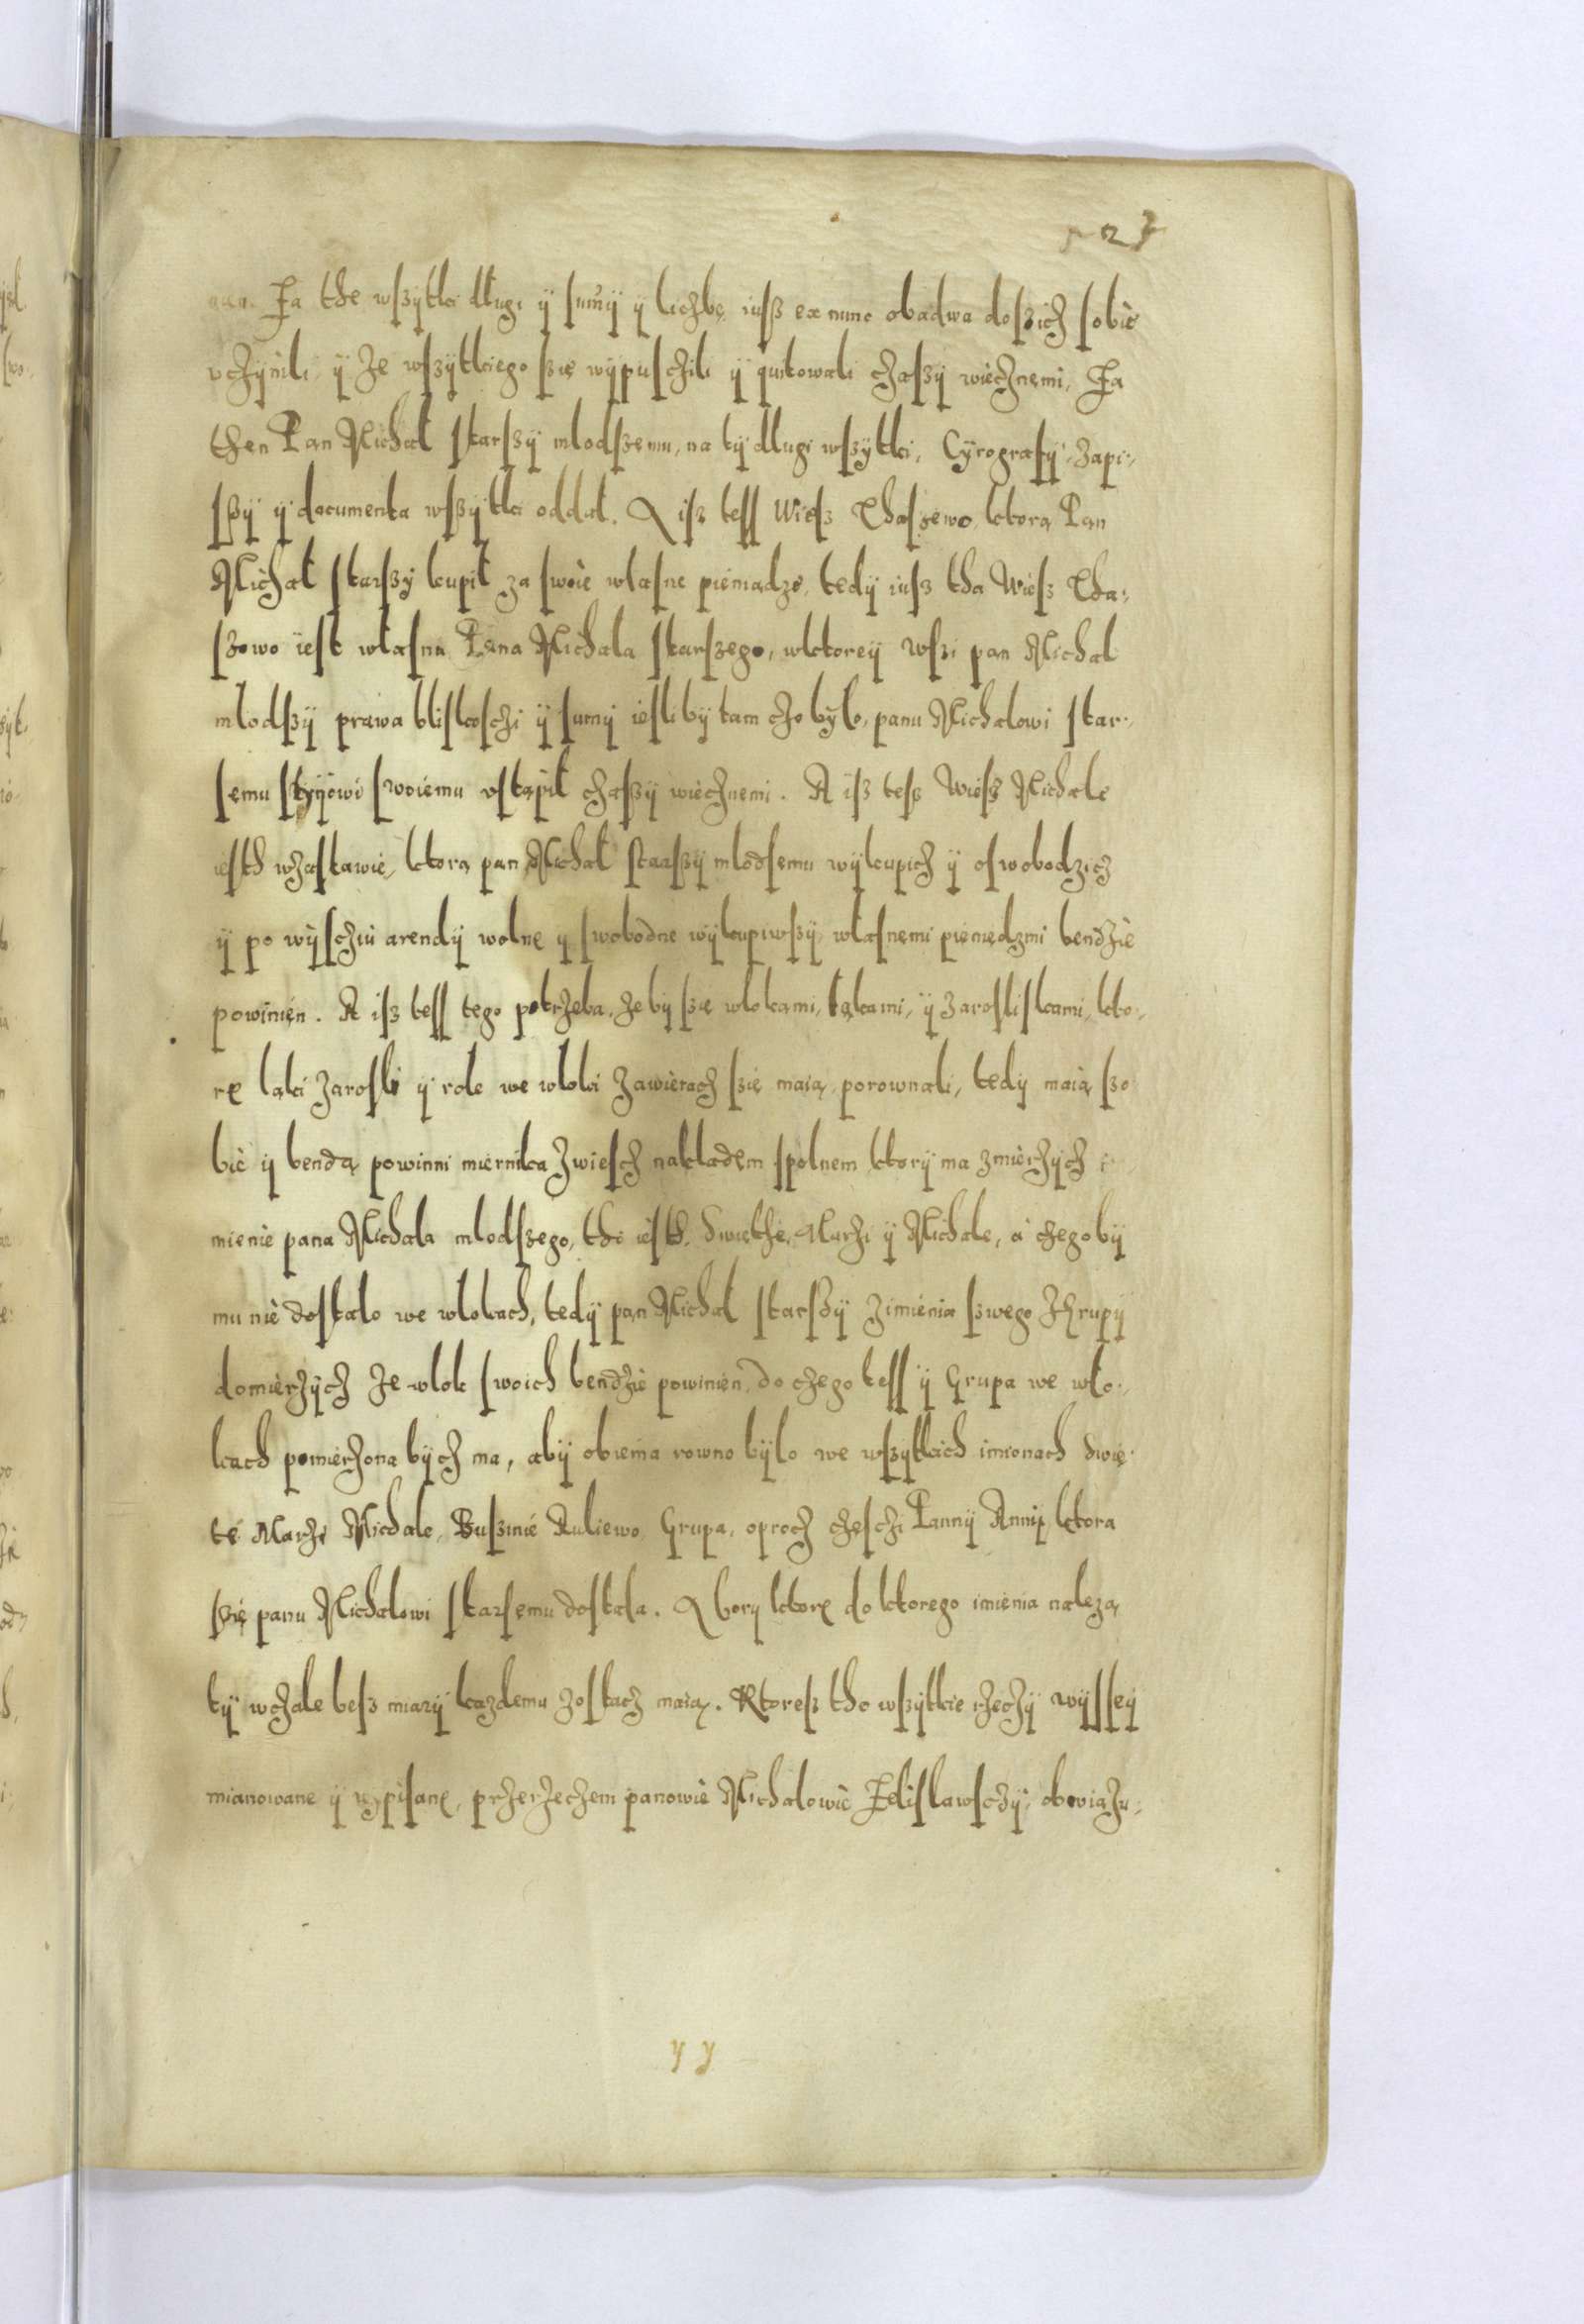 Za the wszytki dlugi ÿ sumÿ ÿ liczbę iusz ex nunc obadwa doszich sobie
vczÿnili, ÿ Ze wszÿtkiego szię wÿpuschili ÿ quitowali czaszÿ wiecznemi, Za
then Pan Michał starszÿ mlodszemu, na tÿ dlugi wszÿtki, Cÿrografÿ, Zapi-
sszÿ ÿ documenta wszÿtki oddał. A isz tess Wiesz Thaszewo, ktorą Pan
Michał starszÿ kupił za swoie własne pieniądze, tedÿ iusz tha Wiesz Tha-
szowo iest własna Pana Michała starszego, wktoreÿ Wszi pan Michał
mlodszÿ prawa bliskoschi ÿ sumÿ iesli bÿ tam czo bÿło, panu Michałowi star-
semu strÿiowi swoiemu vstąpił czaszÿ wiecznemi. A isz tesz Wiesz Michale
iesth wzastawie, ktorą pan Michał starszÿ mlodsemu wÿkupicz ÿ oswobodzicz
ÿ po wÿschiu arendÿ wolne ÿ swobodne wÿkupiwszÿ, własnemi pieniędzmi bendzie
powinien. A isz tess tego potrzeba, zebÿ szię wlokami, łąkami, ÿ Zarosliskami, kto-
re łąki Zarosli ÿ role we wloki Zawieracz szię maią, porownali, tedÿ maią szo
bie ÿ bendą powinni miernika Zwiesch nakladem spolnem, ktorÿ ma zmierzÿcz i-
mienie pana Michala mlodszego, tho iesth, Swięthe, Marzi ÿ Michale, a czegobÿ
mu nie dostało we wlokach, tedÿ pan Michał starszÿ Zimienia szwego ZGrupÿ
domierzÿcz Ze wlok swoich bendzie powinien, do czego tess ÿ Grupa we wlo-
kach pomierzona bÿcz ma, abÿ obiema rowno bÿło we wszÿtkich imionach Swię-
te Marze Michale, Buszinie Ruliewo Grupa, oprocz czeschi Pannÿ Annÿ, ktora
szię panu Michałowi starsemu dostała. A borÿ ktore do ktorego imienia należą
tÿ wczale besz miarÿ kazdemu zostacz maią. Ktoresz tho wszÿtkie rzeczÿ wÿsseÿ
mianowane ÿ wpisane, przerzeczeni panowie Michałowie Zelislawsczÿ, obowiązu-
y y